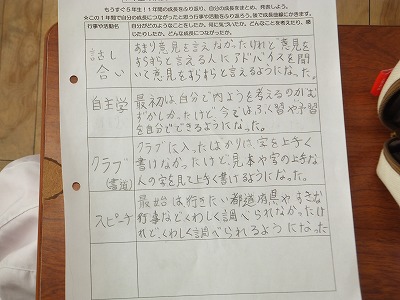 もうすぐ5年生！1年間の成長をふり返り、自分の成長をまとめ、発表しよう。
※この1年間で自分の成長につながったと思う行事や活動をふり返ろう。後で成長曲線にかきます。
行事や活動名
自分がどのようなことをしたか。何に気づいたか。どんなことを考えたり、感じたりしたか。どんな成長につながったか。
話し
合い
あまり意見を言えなかったけれど意見を
すらすらと言える人にアドバイスを聞
いて意見をすらすらと言えるようになった。
自主学
最初は自分で内ようを考えるのがむ
ずかしかったけど、今ではふく習や予習
を自分でできるようになった。
クラブ
(書道)
クラブに入ったばかりに、字を上手く
書けなかったけど、見本や字の上手な
人の字を見て上手く書けるようになった。
スピーチ
最始は、行きたい都道府県やすきな
行事などくわしく調べられなかったけ
れど、くわしく調べられるようになった